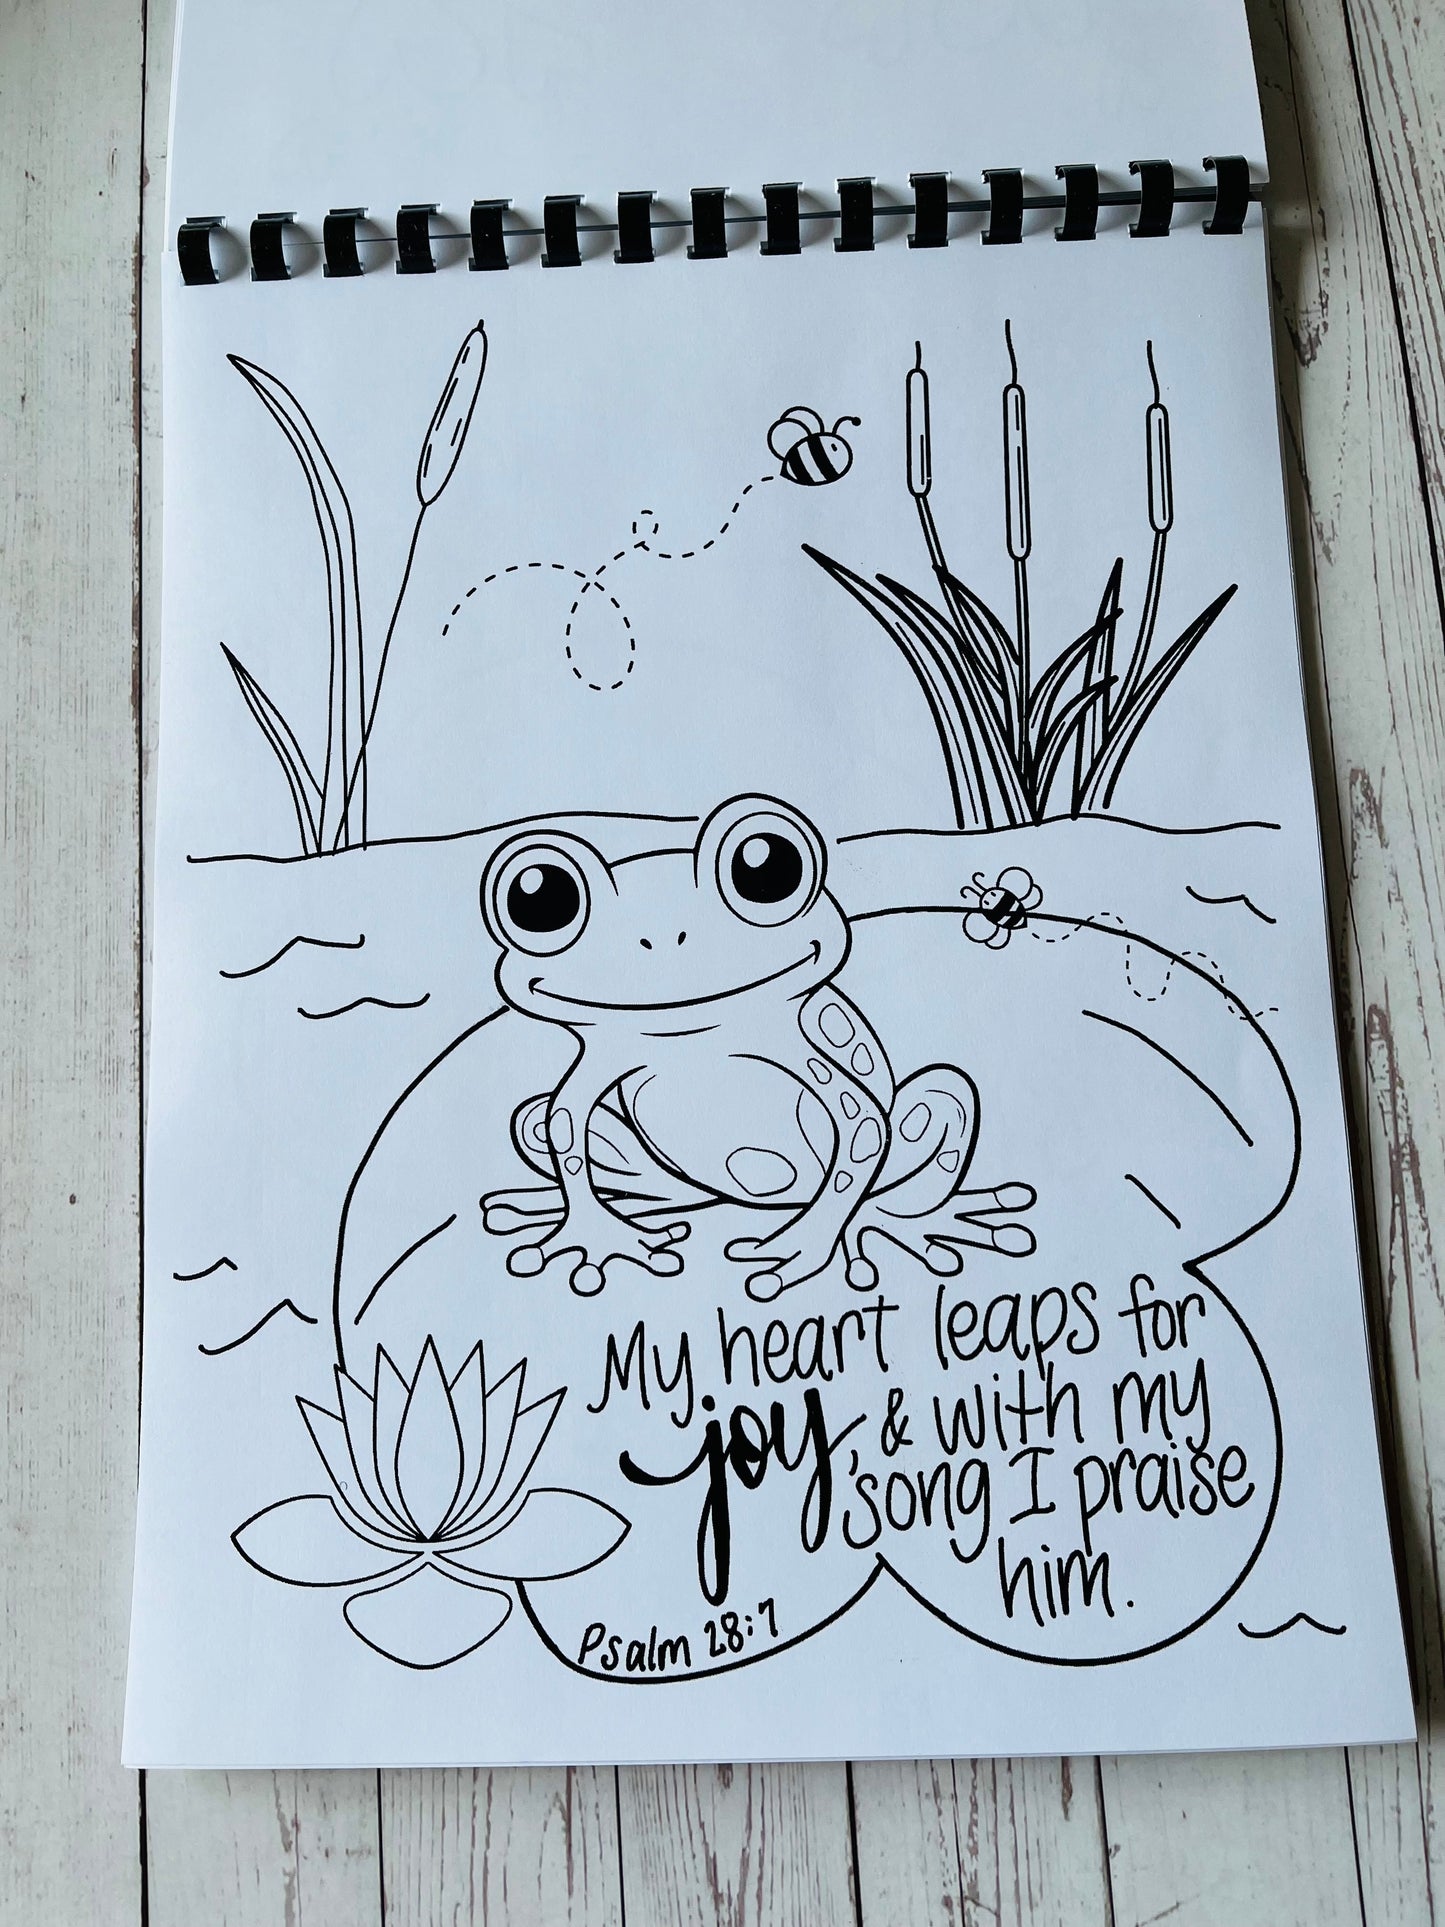 My heart leaps for
joy, & with my
song I praise
him.
Psalm 28:7